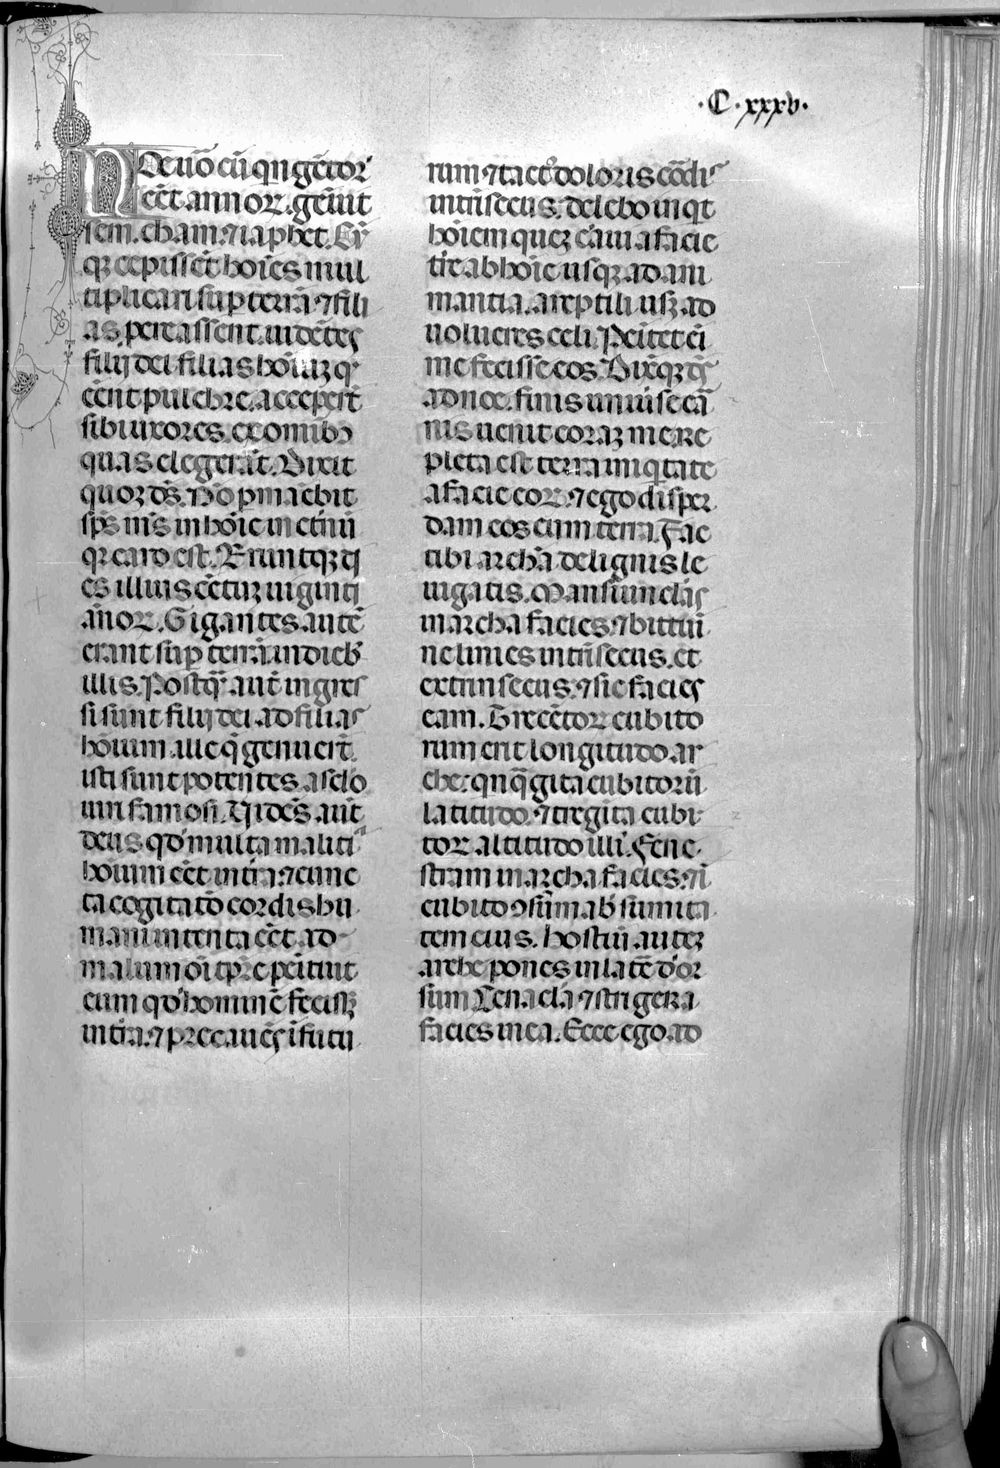 ·C·xxxv·
Noe u͛o cū q̄ngētor͛
eēt annoꝝ. genuit
sem. cham. ⁊ iaphet. Cū
qꝫ cepissēt hoīes mul
tiplicari suꝑ terrā ⁊ fili
as ꝓcreassent. uidētes
filij dei filias hoīuꝫ ꝙ
eēnt pulchre. acceperūt
sibi uxores. ex omnibꝰ
quas elegerāt. Dixit
quoꝫ dꝰs. Nō ꝑmaēbit
sp̄s m̄s in hoīe in etnū
qꝛ caro est. Eruntqꝫ di
es illius cētuꝫ uiginti
ānoꝝ. Gigantes autē
erant suꝑ terrā in dieb͛
illis. Postq̄ aut̄ ingres
si sunt filij dei ad filias
hoīum. ille q̄ genuerūt.
isti sunt potentes a sclo
uiri famosi. Uidēs aut̄
deus qd͛ multa maliti
hoīum eēt in tr̄a. ⁊ cunc
ta cogitatō cordis hu
mani intenta eēt ad
malum oī tpr̄e penituit
eum qd͛ hominē fecissꝫ
in tr̄a. ⁊ precauēs ī futu
rum ⁊ tact͛ dolor̄is cordi͛
intrīsecus. delebo inqt
hoīem queꝫ c͛aui a facie
tr̄e ab hoīe usqꝫ ad ani
mantia. a reptili usqꝫ ad
uolucres celi. Penitet ēi
me fecisse eos. Dixitqꝫ dꝰs
ad noe. finis uniuerse car
nis uenit coraꝫ me. re
pleta est terra iniqtate
a facie eoꝝ. ⁊ ego disper
dam eos cum terra. Fac
tibi archā de lignis le
uigatis. Mansiunclas
in archa facies. ⁊ bittūi
ne linies intrīsecus. et
extrinsecus. ⁊ sic facies
eam. Trecētoꝝ cubito
rum erit longitudo ar
che. qn̄q̄gita cubitorū
latitudo. ⁊ t͛gīta cubi
toꝝ altitudo illi͛. Fene
stram in archa facies. ⁊ ī
cubito ꝯsūmab͛ summita
tem eius. hostiū auteꝫ
arche pones in latē d͛or
sum Cenacla ⁊ st͛igera
facies in ea. Ecce ego ad